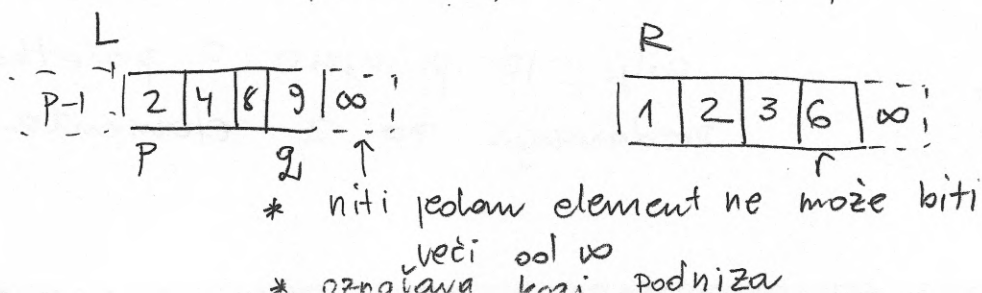 L R
p-1 2 4 8 9 ∞ 1 2 3 6 ∞
p q r
* niti jedan element ne može biti
veći od ∞
* označava kraj podniza